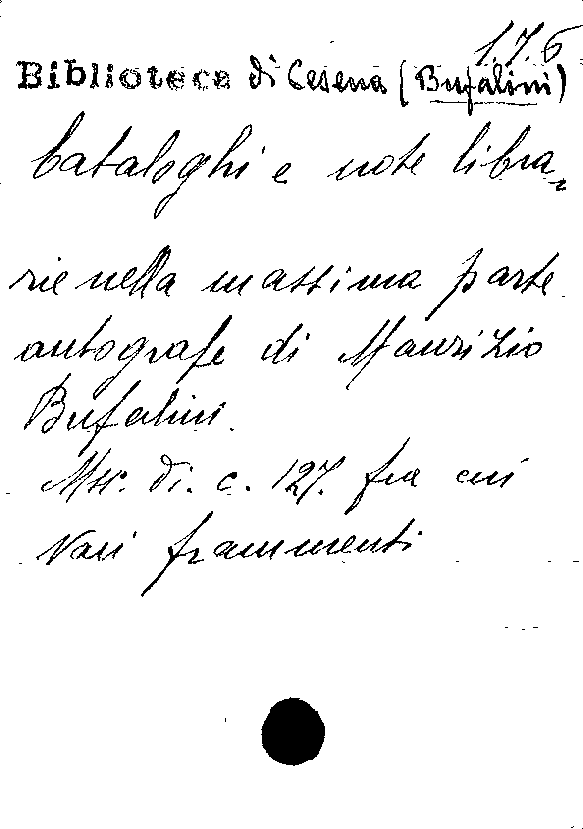 1.7.6
Biblioteca di Cesena (Bufalini)
Cataloghi e note libra-
rie nella massima parte
autografe di Maurizio
Bufalini.
Mss. di. c. 127. fra cui
vari frammenti